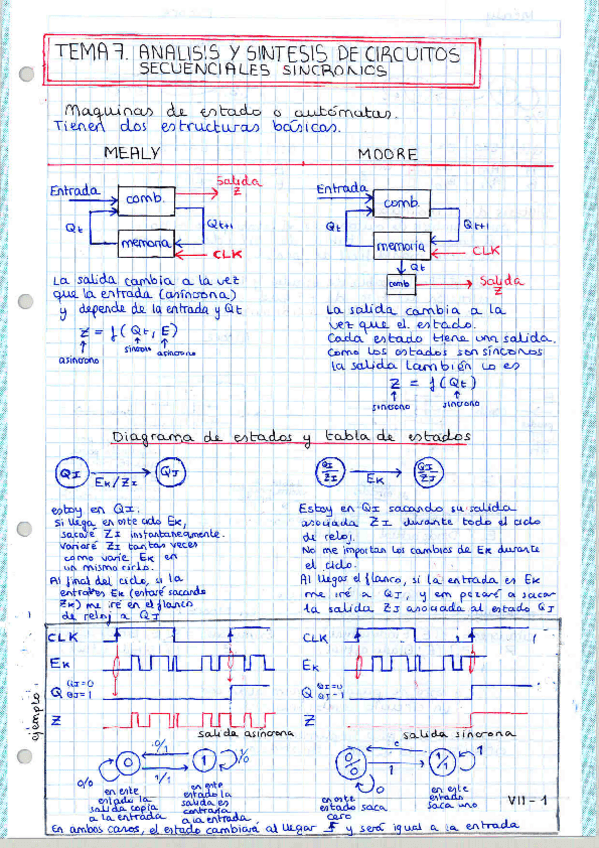 TEMA 7. ANALISIS Y SINTESIS DE CIRCUITOS
SECUENCIALES SINCRONICS
Maquinas de estado o autómatas.
Tienen dos estructuras básicas.
MEALY
Entrada
comb.
Salida
Z
Qt
Qt+1
memoria
CLK
La salida cambia a la vez
que la entrada (asíncrona)
y depende de la entrada y Qt
Z = f(Qt, E)
asíncrono
síncrono
asíncrono
MOORE
Entrada
comb.
Qt
Qt+1
memoria
CLK
Qt
comb
Salida
Z
La salida cambia a la
vez que el estado.
Cada estado tiene una salida.
Como los estados son síncronos
la salida también lo es
Z = f(Qt)
síncrono
síncrono
Diagrama de estados y tabla de estados
QI
EK/ZI
QJ
estoy en QI.
Si llega en este ciclo EK,
sacaré ZI instantáneamente.
Variaré ZI tantas veces
como varíe EK en
un mismo ciclo.
Al final del ciclo, si la
entrada es EK (estaré sacando
ZK) me iré en el flanco
de reloj a QJ
QI
ZI
EK
QJ
ZJ
Estoy en QI sacando su salida
asociada ZI durante todo el ciclo
de reloj.
No me importan los cambios de EK durante
el ciclo.
Al llegar el flanco, si la entrada es EK
me iré a QJ, y empezaré a sacar
la salida ZJ asociada al estado QJ
ejemplo:
CLK
EK
Q QI=0
QJ=1
Z
salida asíncrona
0/1
0/0
0
1
1/0
1/1
en este
estado la
salida copia
a la entrada
en este
estado la
salida es
contraria
a la entrada
CLK
EK
Q QI=0
QJ=1
Z
salida síncrona
0/0
1
1/1
1
0
en este
estado saca
cero
en este
estado
saca uno
VII - 1
En ambos casos, el estado cambiará al llegar y será igual a la entrada